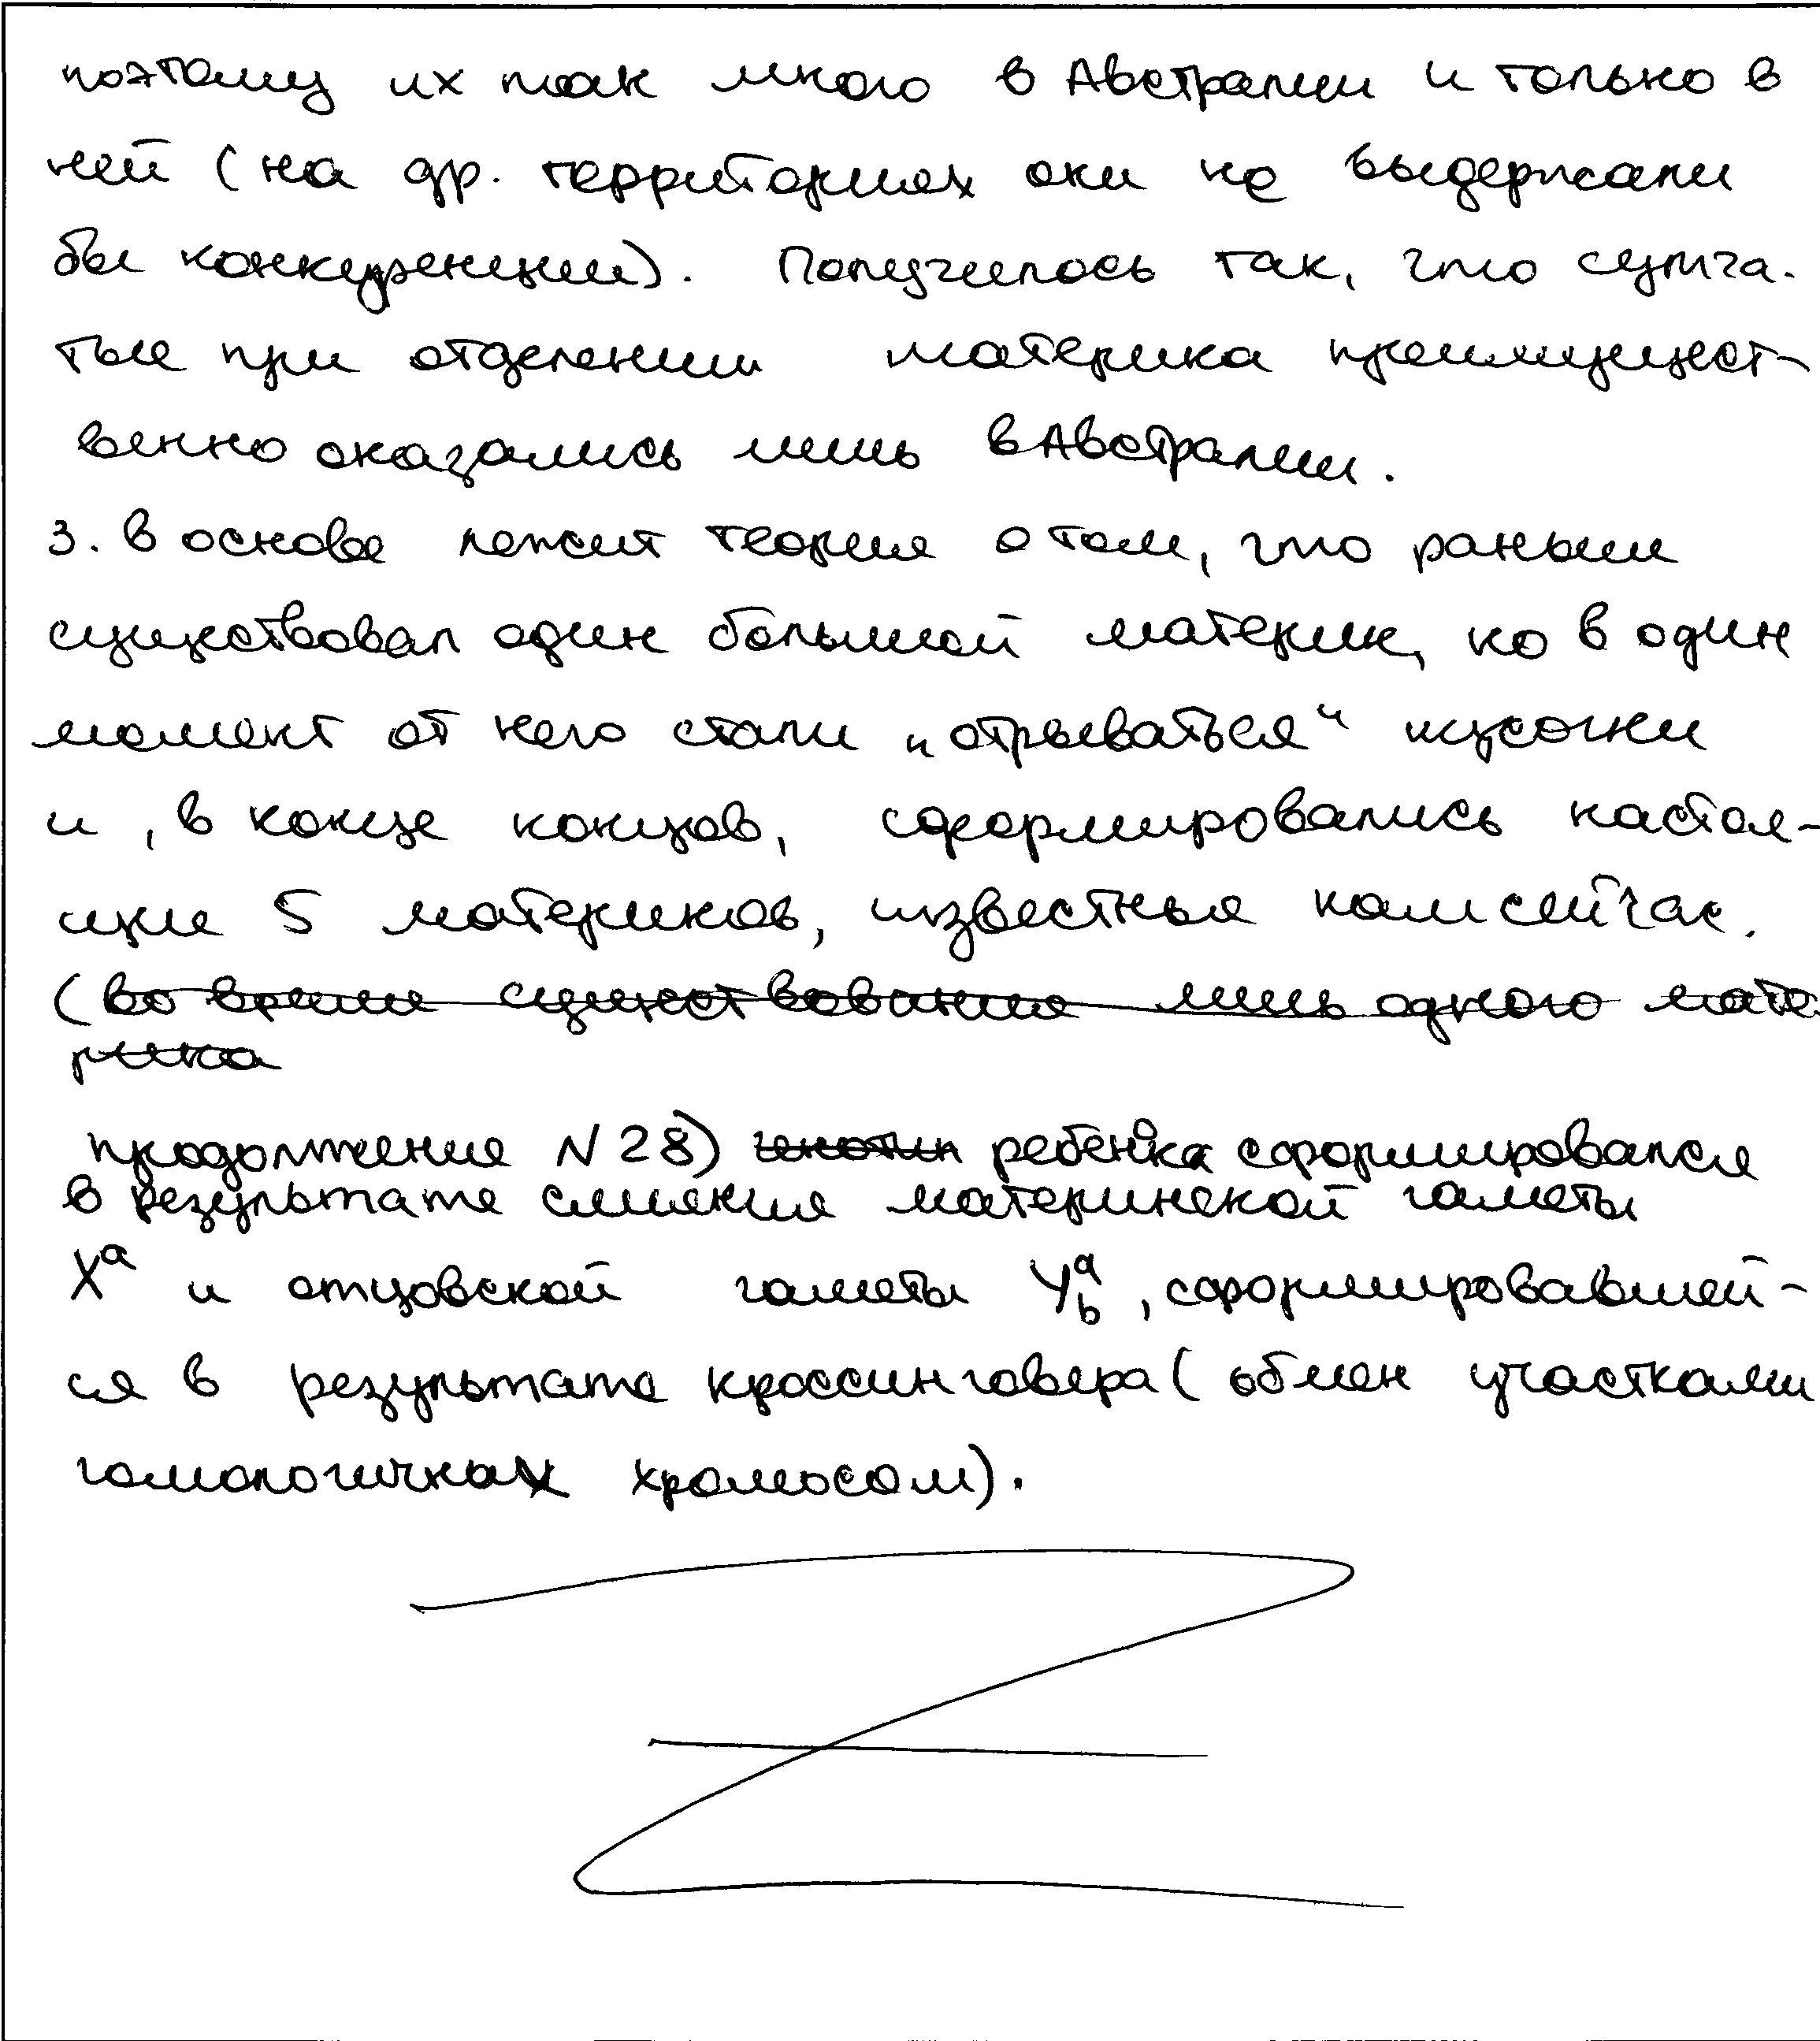 поэтому их так много в Австралии и только в
ней (на др. территориях они не выдержали
бы конкуренции). Получилось так, что сумча-
тые при отделении материка преимущест-
венно оказались лишь в Австралии.
3. В основе лежит теория о том, что раньше
существовал один большой материк, но в один
момент от него стали „отрываться“ кусочки
и, в конце концов, сформировались настоя-
щие 5 материков, известные нам сейчас.
(во время существования лишь одного мате-
рика
продолжение N 28) генотип ребёнка сформировался
в результате слияния материнской гаметы
Xᵃ и отцовской гаметы Yᵃb, сформировавшей-
ся в результате кроссинговера (обмен участками
гомологичных хромосом).